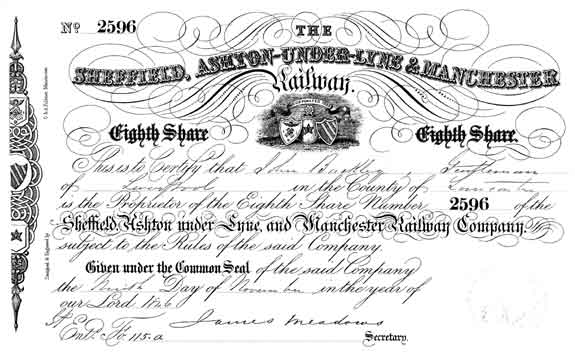 No 2596
THE
SHEFFIELD, ASHTON-UNDER-LYNE & MANCHESTER
Railway.
Eighth Share Eighth Share.
This is to Certify that John Buckley, Gentleman
of Liverpool in the County of Lancaster
is the Proprietor of the Eighth Share Number 2596 of the
Sheffield, Ashton under Lyne, and Manchester Railway Company,
subject to the Rules of the said Company.
Given under the Common Seal of the said Company
the Ninth Day of November in the year of
our Lord 1846
James Meadows
Entd. Fo. 115.a Secretary.
Designed & Engraved by
Manchester